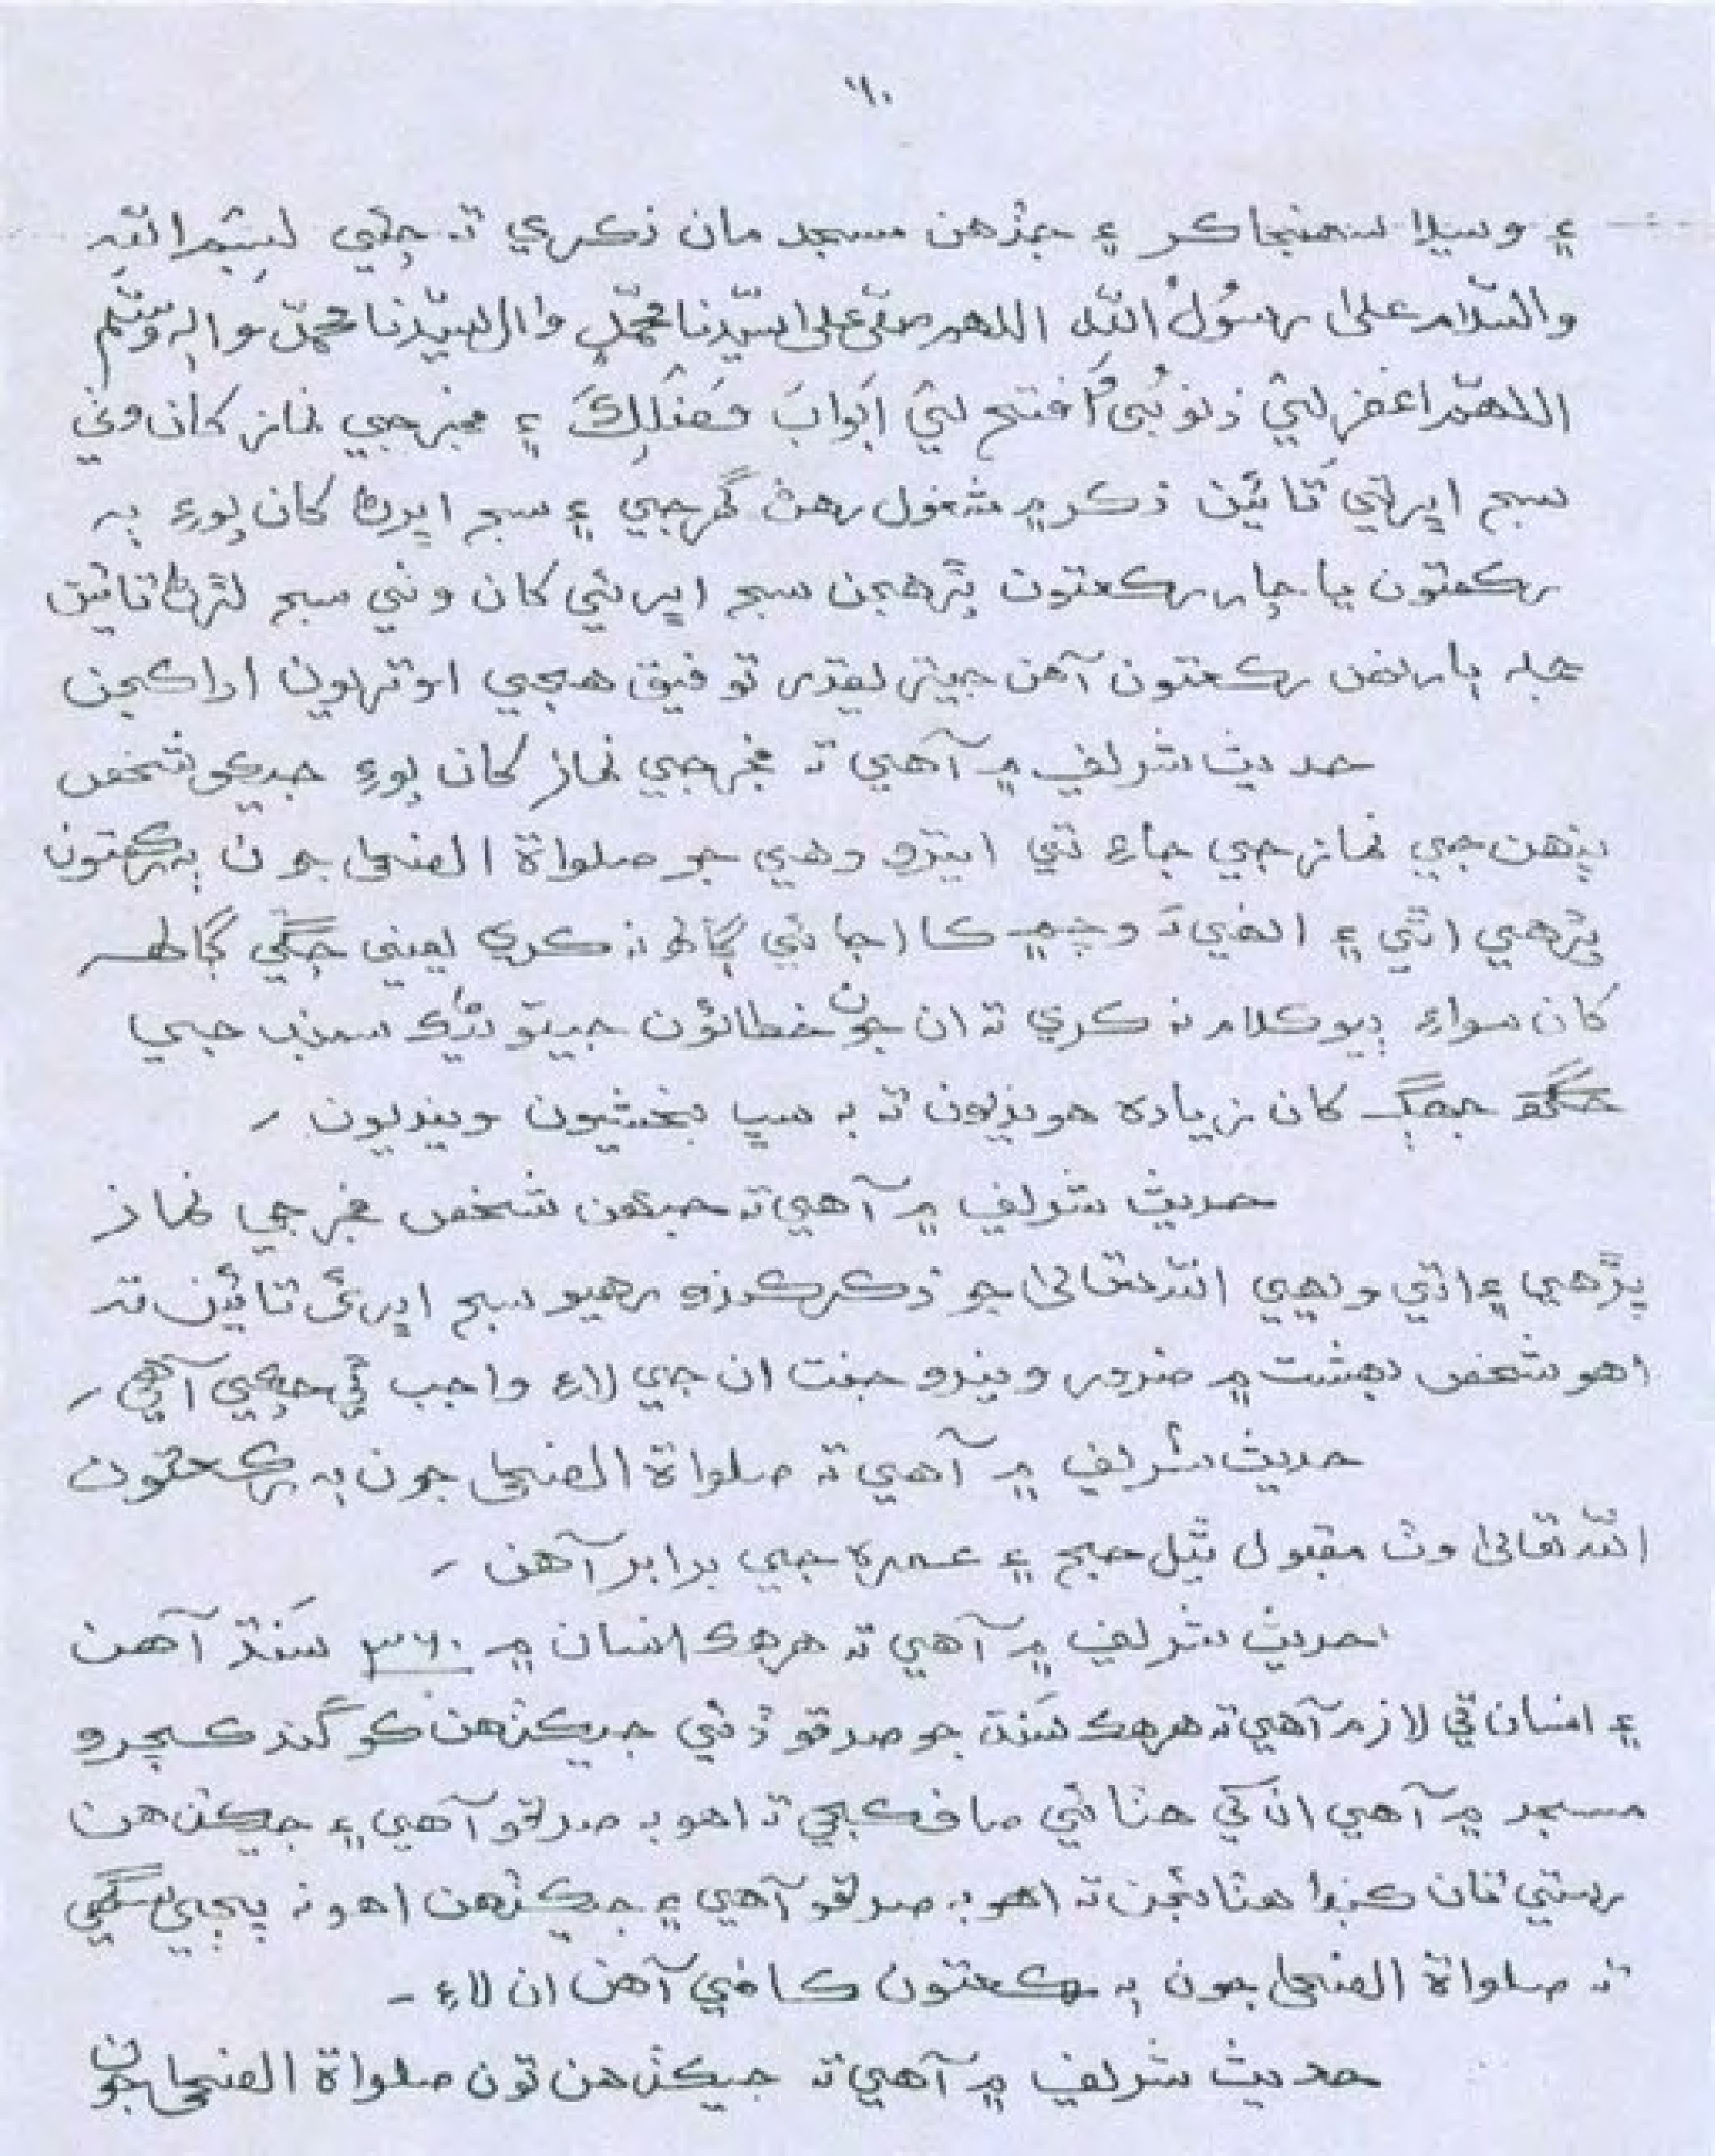 ٦٠
۽ وسيلا سهنجا ڪر ۽ جڏهن مسجد مان نڪري تہ چئي بِسْمِ اللهِ
والسّلام علیٰ رسُولُ اللّٰہ اللهم صلّی علیٰ سیّدنا محمّدٍ وال سیّدنا محمّد والہٖ وسلّم
اللهمّ اغفر لِيْ ذنوبُی وَافتح لِيْ اَبوابَ فَضلِكَ ۽ فجر جي نماز کان وٺي
سج اڀرڻي تائين ذڪر ۾ مشغول رهڻ گھرجي ۽ سج اڀرڻ کان پوءِ ٻہ
رڪعتون يا چار رڪعتون پڙهجن سج اڀرڻي کان وٺي سج لڙڻ تائين
جملہ ٻارنهن رڪعتون آهن جيتري بقدر توفيق هجي اوتريون ادا ڪجن
حديث شريف ۾ آهي تہ فجر جي نماز کان پوءِ جيڪو شخص
پنهن جي نماز جي جاءِ تي ايترو وهي جو صلواة الضحیٰ جون ٻہ رڪعتون
پڙهي اٿي ۽ انهي تہ وچ ۾ ڪا اجائي ڳالھ نہ ڪري يعني چڱي ڳالھ
کان سواءِ ٻيو ڪلام نہ ڪري تہ ان جون خطائون جيتوڻيڪ سمنڊ جي
جھڳ کان زياده هونديون تہ بہ سڀ بخشيون وينديون -
حديث شريف ۾ آهي تہ جنهن شخص فجر جي نماز
پڙهي ۽ اتي ويهي اللہ تعالیٰ جو ذڪر ڪندو رهيو سج اڀرڻ تائين تہ
اهو شخص بهشت ۾ ضرور ويندو جنت ان جي لاءِ واجب ٿي چڪي آهي -
حديث شريف ۾ آهي تہ صلواة الضحیٰ جون ٻہ رڪعتون
اللہ تعالیٰ وٽ مقبول ٿيل حج ۽ عمره جي برابر آهن -
حديث شريف ۾ آهي تہ هر هڪ انسان ۾ ٣٦٠ سَنڌ آهن
۽ انسان تي لازم آهي تہ هر هڪ سَنڌ جو صدقو ڏئي جيڪڏهن ڪو گند ڪچرو
مسجد ۾ آهي ان کي هٽائي صاف ڪجي تہ اهو بہ صدقو آهي ۽ جيڪڏهن
رستي تان ڪنڊا هٽائجن تہ اهو بہ صدقو آهي ۽ جيڪڏهن اهو نہ پڄي سگھي
تہ صلواة الضحیٰ جون ٻہ رڪعتون ڪافي آهن ان لاءِ -
حديث شريف ۾ آهي تہ جيڪڏهن تون صلواة الضحیٰ جون